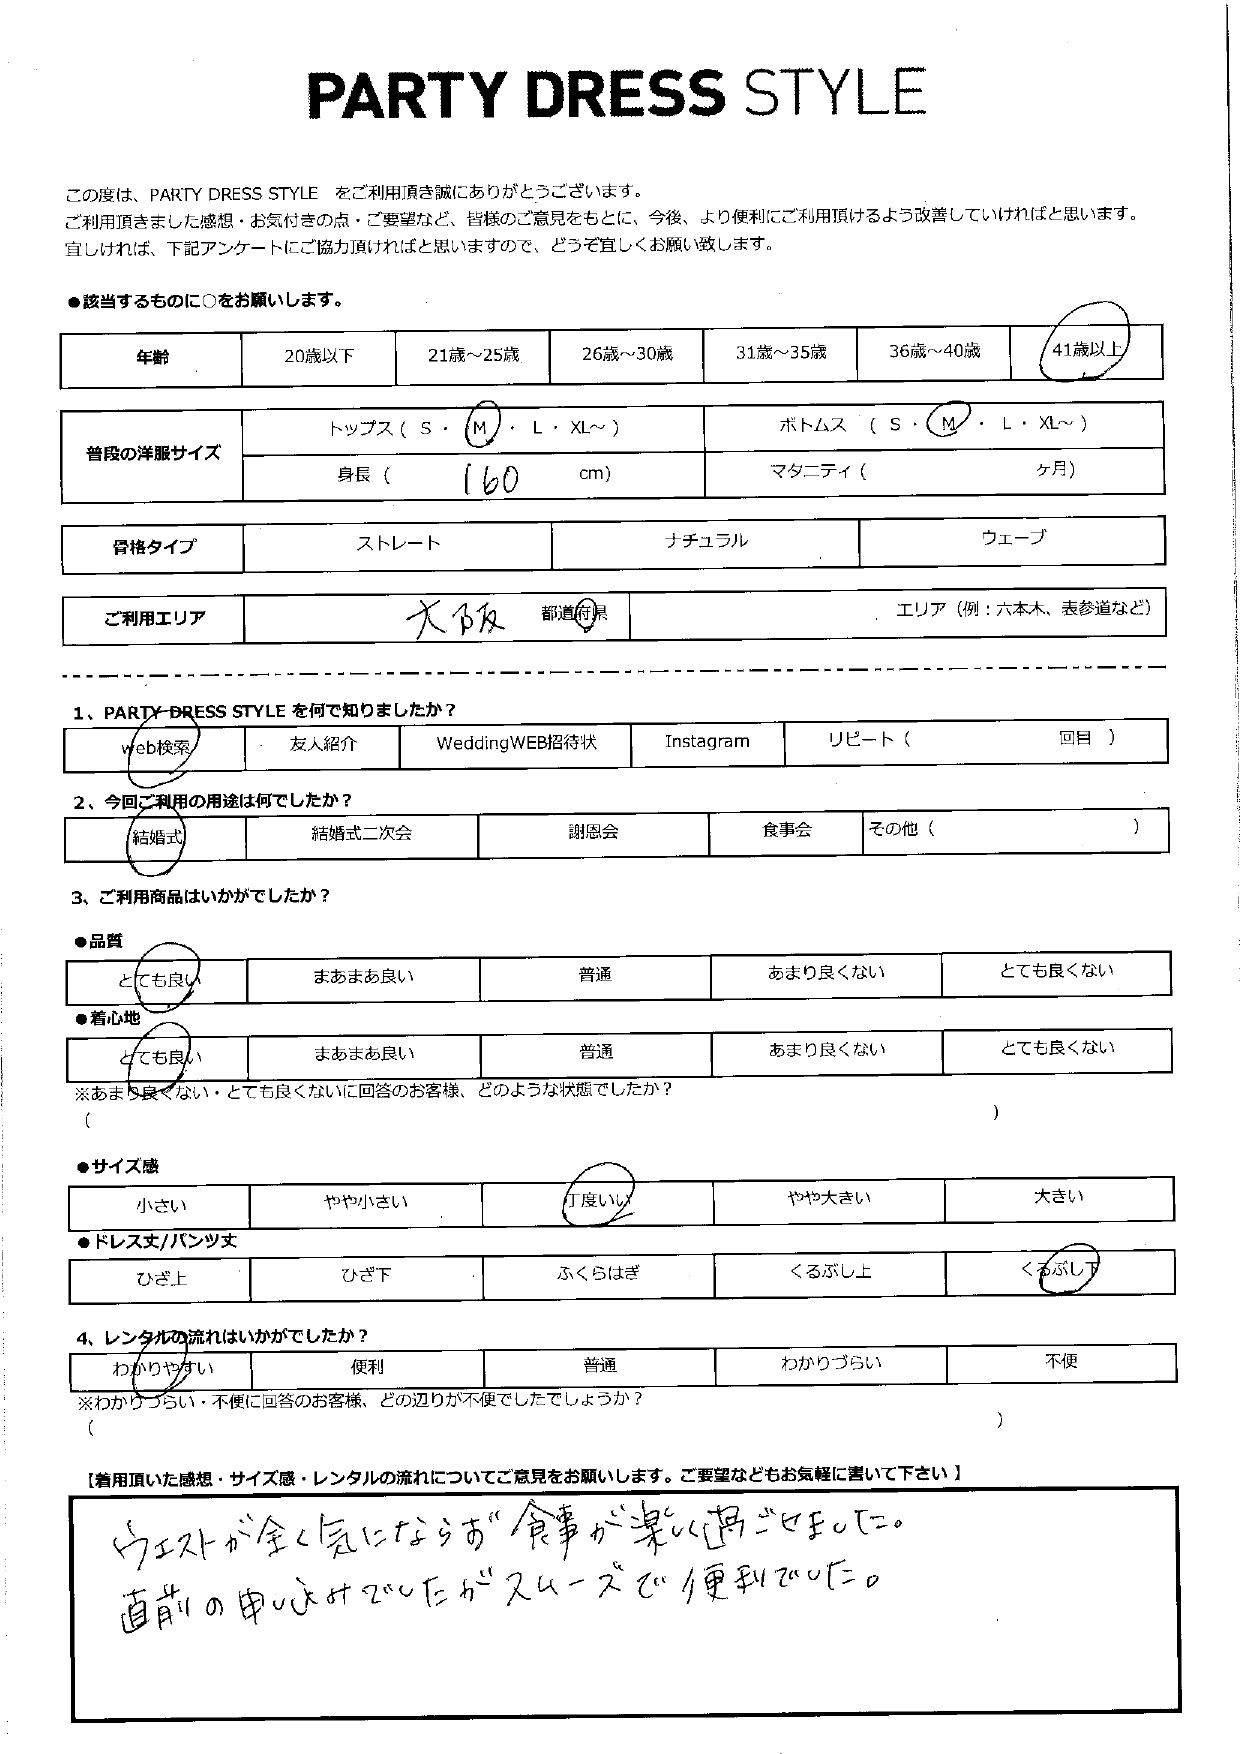 PARTY DRESS STYLE
この度は、PARTY DRESS STYLE をご利用頂き誠にありがとうございます。
ご利用頂きました感想・お気付きの点・ご要望など、皆様のご意見をもとに、今後、より便利にご利用頂けるよう改善していければと思います。
宜しければ、下記アンケートにご協力頂ければと思いますので、どうぞ宜しくお願い致します。
●該当するものに○をお願いします。
年齢 20歳以下 21歳～25歳 26歳～30歳 31歳～35歳 36歳～40歳 41歳以上
普段の洋服サイズ トップス ( S ・ M ・ L ・ XL～ ) ボトムス ( S ・ M ・ L ・ XL～ )
身長 ( 160 cm) マタニティ ( ヶ月)
骨格タイプ ストレート ナチュラル ウェーブ
ご利用エリア 大阪 都道府県 エリア (例：六本木、表参道など)
1、PARTY DRESS STYLE を何で知りましたか？
web検索 友人紹介 WeddingWEB招待状 Instagram リピート ( 回目 )
2、今回ご利用の用途は何でしたか？
結婚式 結婚式二次会 謝恩会 食事会 その他 ( )
3、ご利用商品はいかがでしたか？
●品質
とても良い まあまあ良い 普通 あまり良くない とても良くない
●着心地
とても良い まあまあ良い 普通 あまり良くない とても良くない
※あまり良くない・とても良くないに回答のお客様、どのような状態でしたか？
( )
●サイズ感
小さい やや小さい 丁度いい やや大きい 大きい
●ドレス丈/パンツ丈
ひざ上 ひざ下 ふくらはぎ くるぶし上 くるぶし下
4、レンタルの流れはいかがでしたか？
わかりやすい 便利 普通 わかりづらい 不便
※わかりづらい・不便に回答のお客様、どの辺りが不便でしたでしょうか？
( )
【着用頂いた感想・サイズ感・レンタルの流れについてご意見をお願いします。ご要望などもお気軽に書いて下さい 】
ウエストが全く気にならず食事が楽しく過ごせました。
直前の申し込みでしたがスムーズで便利でした。